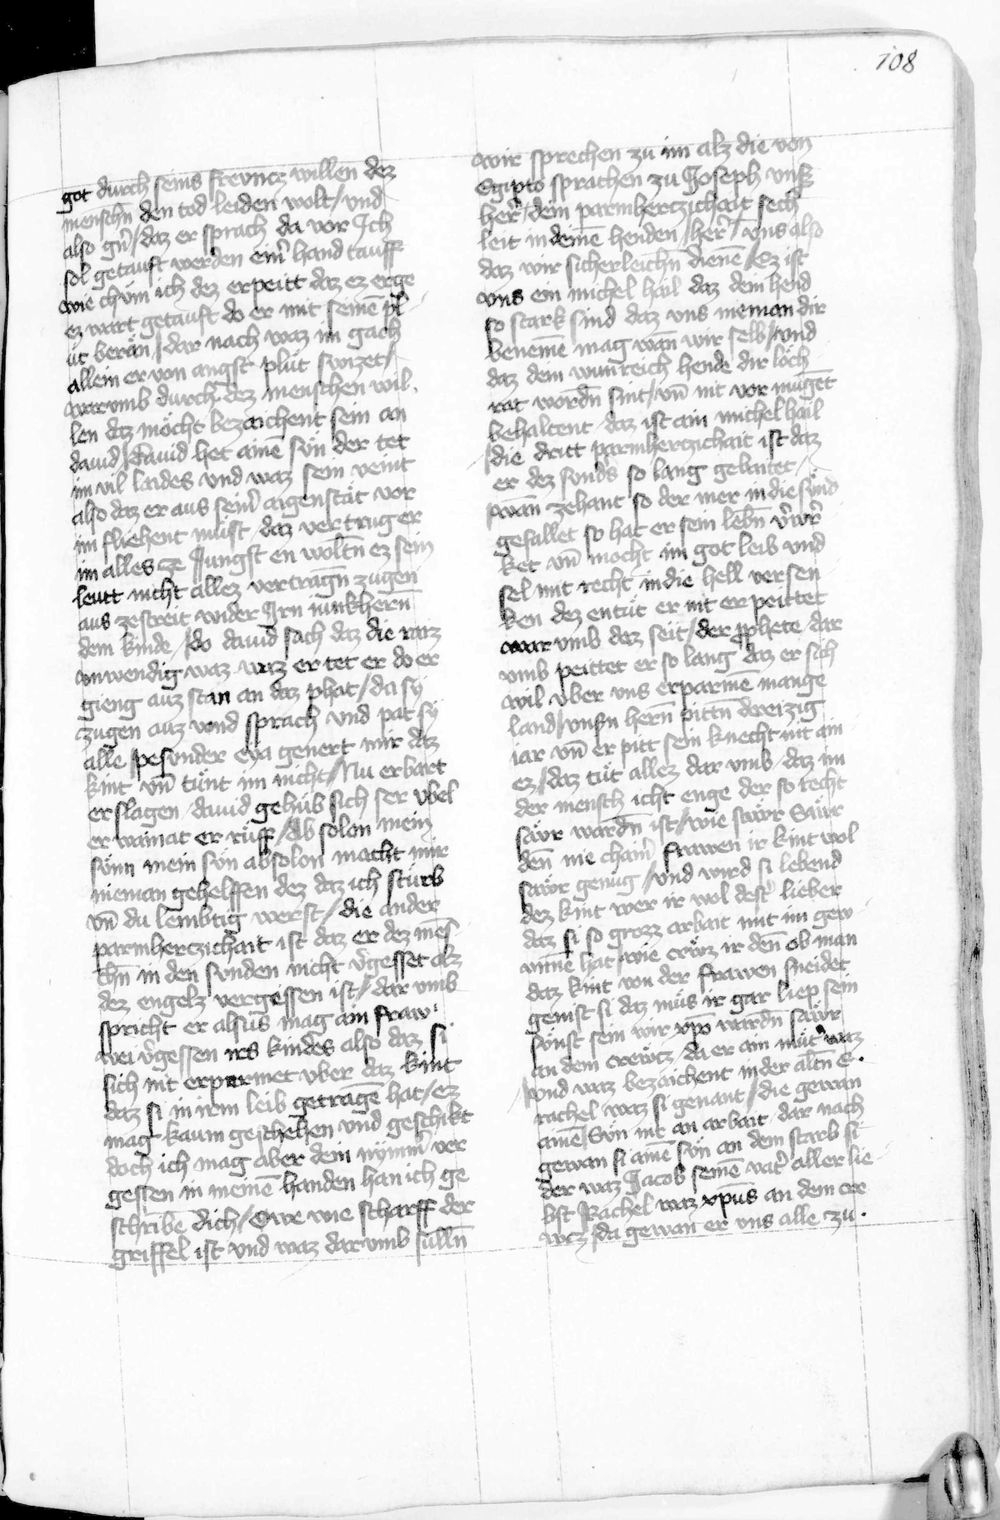 108
got durch seins frevncz willen dez
menschn̄ den tod leiden wolt / vnd
also gn̄ / daz er sprach da vor Ich
sol getauft werden ein̄ hand tauff
wie chüm ich dez erpeitt daz ez erge
ez wart getauft do er mit seinē pl
üt berän / dar nach waz im gach
allein er von angst plüt swizet /
warvmb durch dez menschen wil
len daz möcht bezaichent sein an
dauid / dauid het ainē sün der tet
im vil laides vnd waz sein veint
also daz er aus sein̄ aigenstät vor
im fliehent müst daz vertrug er
im alles ze Jungst en woltn̄ ez sein
leutt nicht allez vertragn̄ zugen
aus zestreit wider Irn iunkhern̄
dem kinde / do dauid sach daz die raiz
vnwendig waz waz er tet er do er
gieng auz stan an daz phat / da sy
zugen auz vond sprach vnd pat sy
alle pesvnder eya genert mir daz
kint vn̄ tünt im nicht / Nu er wart
erslagen / dauid gehüb sich ser vbel
er wainat er rüff / Absolon mein
sünn mein sün absolon macht mir
nieman gehelffen dez daz ich stürb
vn̄ du lembtig werst / die ander
parmherczichait ist daz er dez mēs
chn̄ in den sunden nicht v̄gesset alz
dez engelz vergessen ist / dar vmb
spricht er alsus mag ain fraw
wei v̄gessen irs kindes also daz si
sich nit erparmet vber daz kint
daz si in irem leib getragē hat / ez
mag kaum geschehen vnd geschikt
doch ich mag aber dein nȳmm̄ ver
gessen in meinē handen han ich ge
schribē dich / Owe wie scharff der
griffel ist vnd waz darvmb sülln̄
wir sprechen zu im alz die von
Egipto sprachen zu Joseph vnser
her̄ / dein parmherczichait sech
leit in deinē henden / her̄ / vns also
daz wir sicherleichn̄ dienē / Ez ist
vns ein michel hail daz dein hend
so stark sind daz vns nieman dir
benemē mag wan̄ wir selb / vnd
daz dein wunreich hende dir loch
rat wordn̄ sint / vn̄ nit vor mügēt
behaltent daz ist ain michel hail
die dritt parmherczichait ist daz
er dez sunds so lang gebaitet
wan̄ zehant so der mer in die sünd
gefallet so hat er sein lebn̄ v̄wr̄
ket vn̄ mocht im got leib vnd
sel mit recht in die hell versen
ken dez entüt er nit er peittet
war vmb daz seit / der prophete / dar
vmb peittet er so lang daz er sich
wil vber vns erparmē mange
land / vnsn̄ hern̄ pittn̄ dreizig
iar vn̄ er pitt sein knecht nit ain
ez / daz tüt allez dar vmb / daz im
der mensch icht enge der so recht
säwr wardn̄ ist / wie säwr Säwr
den̄ nie chain̄ frawen ir kint wol
säwr genüg / vnd wird si lebend
dez kint wer ir wol dest̄ lieber
daz si so grozz arbait mit im gew
unnē hat / wie cräwz ir den̄ ob man
daz kint von der frawen sneidet
genist si daz müs ir gar liep sein
sünst sein wir xp̄o wardn̄ säwr
an dem crewtz / da er ain müt̄ waz
vnd waz bezaichent in der altn̄ e.
rachel waz si genant / die gewan
ainē Sün mit an arbait / dar nach
gewan si ainē sün an dem starb si
der waz Jacob seinē vat̄ aller lie
bst Rachel waz xp̄us an dem cre
wcz / da gewan er vns alle zu.